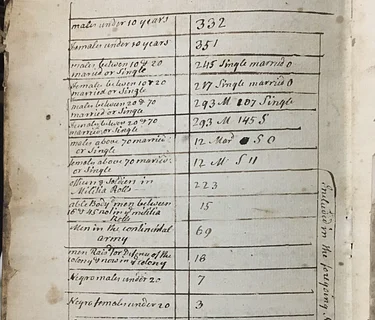 males under 10 years 332
females under 10 years 351
males between 10 & 20 245 Single married 0
maried or Single
females between 10 & 20 217 Single married 0
married or Single
males between 20 & 70 293 M 107 Single
married or Single
females between 20 & 70 293 M 145 S
married or Single
males above 70 married 12 Mar S 0
or Single
females above 70 married 12 M S 11
or Single
others Soldiers in 223
Militia Rolls
able Body men between 15
16 & 45 not in militia
Rolls
Men in the continental 69
army
men Raisd for Defence of the 16
colony & now in colony
Negro males under 20 7
Negro females under 20 3
Included in the forgoing